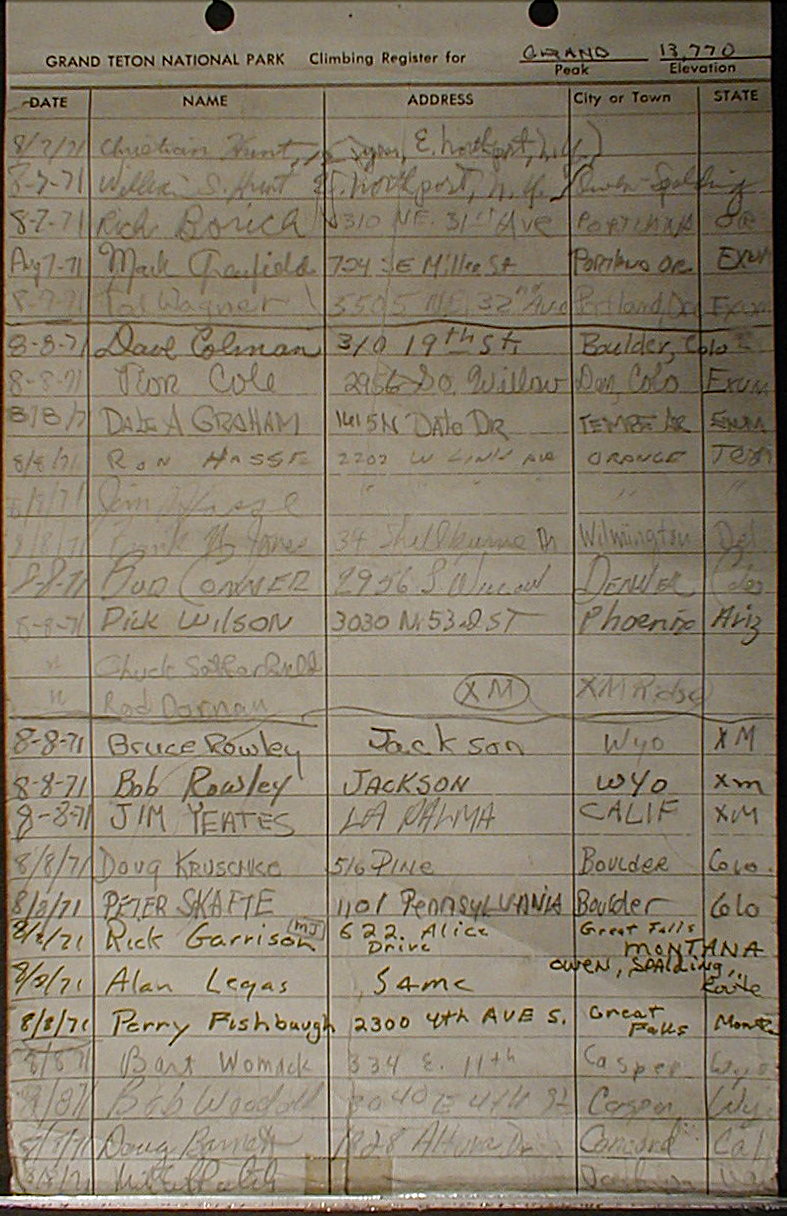 GRAND TETON NATIONAL PARK Climbing Register for GRAND 13,770
Peak Elevation
DATE NAME ADDRESS City or Town STATE
8/7/71 Christian Hunt, E. Northport, N.Y.)
8-7-71 William S. Hunt E. Northport, N.Y. Owen-Spalding
8-7-71 Rich Borich 5310 NE. 31st Ave PORTLAND OR
Aug 7-71 Mark 724 SE Miller St Portland Or. EXUM
8-7-71 Wagner 5505 NE 32nd Ave Portland, Exum
8-8-71 Dave Colman 310 19th St Boulder, Colo
8-8-71 Ron Cole 2956 So. Willow Den, Colo Exum
8/8/7 DALE A GRAHAM 1415 N DATE DR TEMPE AR EXUM
8/8/71 RON HASSE 2202 W AVE ORANGE
8/7/71 Jim " " " "
8/8/71 Jones 34 Shellburne Dr Wilmington Del
8-8-71 BUD CONNER 2956 S Willow DENVER Colo
8-8-71 DICK WILSON 3030 N. 53rd ST Phoenix Ariz
" Chuck
" Rod Dornan XM XM Ridge
8-8-71 Bruce Rowley Jackson Wyo XM
8-8-71 Bob Rowley JACKSON WYO Xm
8-8-71 JIM YEATES LA PALMA CALIF XM
8/8/71 Doug KRUSCHKE 516 PINE BOULDER Colo.
8/8/71 PETER SKAFTE 1101 PENNSYLVANIA Boulder Colo
8/8/71 Rick Garrison MJ 622 Alice Drive Great Falls MONTANA
8/8/71 Alan Legas Same Owen, SPALDING, Route
8/8/71 Perry Fishbaugh 2300 4th AVE S. Great Falls Mont
8/8/71 Bart Womack 334 E. 11th Casper Wyo
8/8/71 Bob 3040 E 4th St Casper Wy.
8/8/71 Doug Barnett 1828 Dr Concord Cal